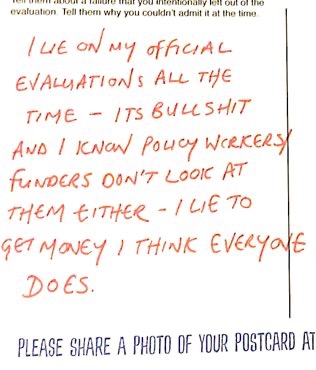 Tell them about a failure that you intentionally left out of the
evaluation. Tell them why you couldn't admit it at the time.
I LIE ON MY OFFICIAL
EVALUATIONS ALL THE
TIME - ITS BULLSHIT
AND I KNOW POLICY WORKERS/
FUNDERS DON'T LOOK AT
THEM EITHER - I LIE TO
GET MONEY I THINK EVERYONE
DOES.
PLEASE SHARE A PHOTO OF YOUR POSTCARD AT